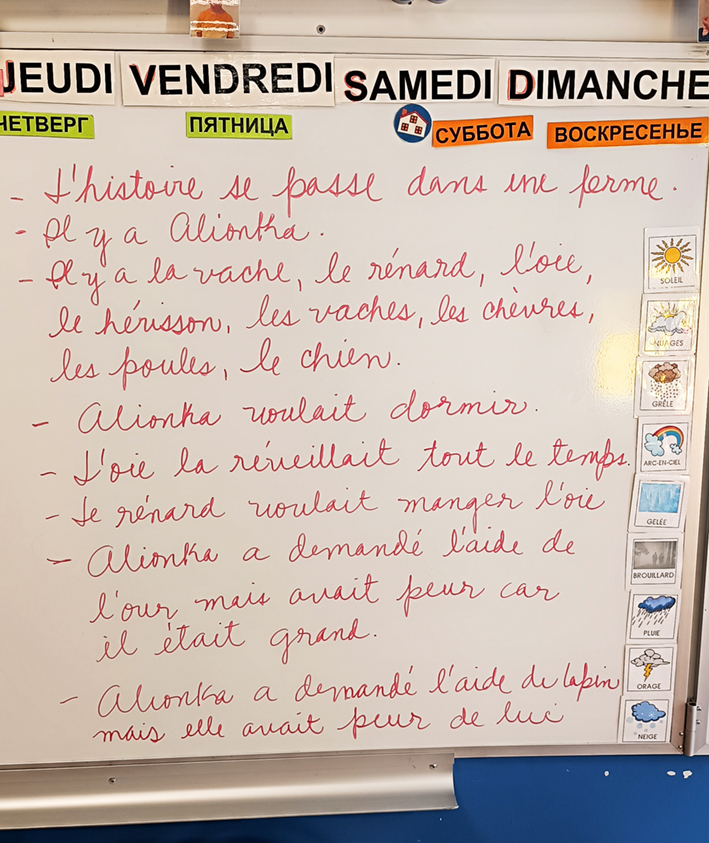 JEUDI VENDREDI SAMEDI DIMANCHE
ЧЕТВЕРГ ПЯТНИЦА СУББОТА ВОСКРЕСЕНЬЕ
- L'histoire se passe dans une ferme.
- Il y a Alionka.
- Il y a la vache, le rénard, l'oie,
le hérisson, les vaches, les chèvres,
les poules, le chien.
- Alionka voulait dormir.
- L'oie la réveillait tout le temps.
- Le rénard voulait manger l'oie
- Alionka a demandé l'aide de
l'our mais avait peur car
il était grand.
- Alionka a demandé l'aide du lapin
mais elle avait peur de lui
SOLEIL
NUAGES
GRÊLE
ARC-EN-CIEL
GELÉE
BROUILLARD
PLUIE
ORAGE
NEIGE